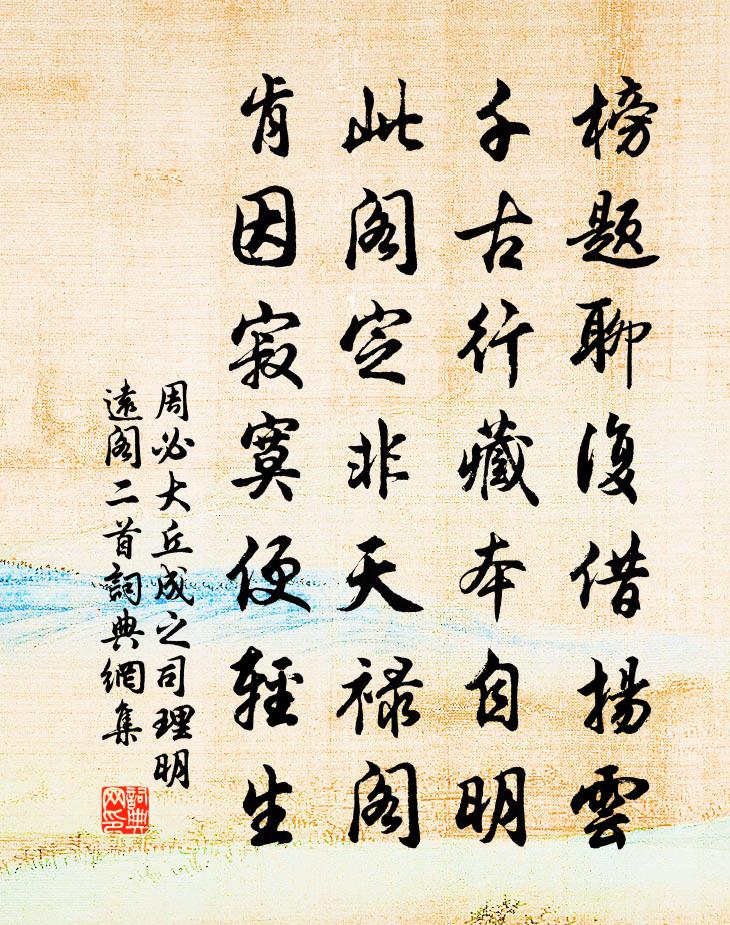 榜題聊復借揚雲
千古行藏本自明
此閣定非天祿閣
肯因寂寞便輕生
周必大丘成之司理明
遠閣二首詞典網集
詞典網印